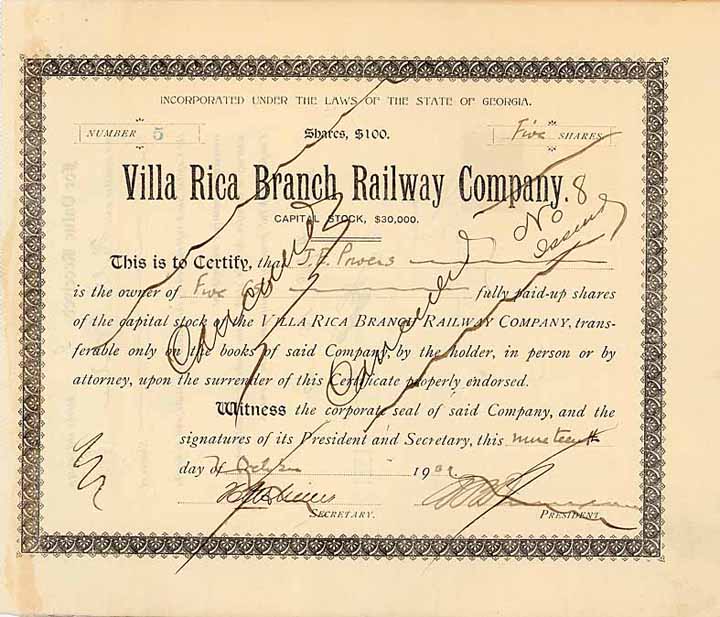 INCORPORATED UNDER THE LAWS OF THE STATE OF GEORGIA.
NUMBER 5
Shares, $100.
Five SHARES
Villa Rica Branch Railway Company.
CAPITAL STOCK, $30,000.
No 8 issued
This is to Certify, that J.E. Powers
is the owner of Five fully paid-up shares
of the capital stock of the VILLA RICA BRANCH RAILWAY COMPANY, trans-
ferable only on the books of said Company, by the holder, in person or by
attorney, upon the surrender of this Certificate properly endorsed.
Cancelled
Cancelled
Witness the corporate seal of said Company, and the
signatures of its President and Secretary, this nineteenth
day of 190
SECRETARY.
PRESIDENT.